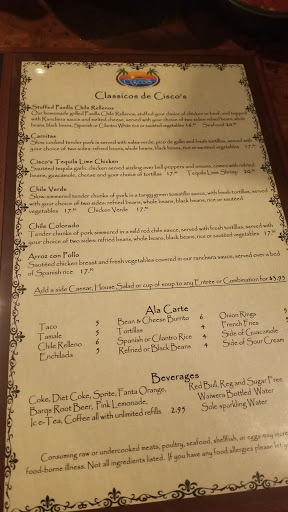 Classicos de Cisco's
Stuffed Pasilla Chile Rellenos
Our homemade grilled Pasilla Chile Rellenos, stuffed your choice of chicken or beef, and topped
with Ranchera sauce and melted cheese, served with your choice of two sides: refried beans, whole
beans, black beans, Spanish or Cilantro White rice or sautéed vegetables
Carnitas
Slow cooked tender pork is served with salsa verde, pico de gallo and fresh tortillas, served with
your choice of two sides: refried beans, whole beans, black beans, rice or sautéed vegetables
Cisco's Tequila Lime Chicken
Sautéed tequila garlic chicken served sizzling over bell peppers and onions, comes with refried
beans, guacamole, cheese and your choice of tortillas Tequila Lime Shrimp
Chile Verde
Slow simmered tender chunks of pork in a tangy green tomatillo sauce, with fresh tortillas, served
with your choice of two sides: refried beans, whole beans, black beans, rice or sautéed
vegetables Chicken Verde
Chile Colorado
Tender chunks of pork simmered in a mild red chile sauce, served with fresh tortillas, served with
your choice of two sides: refried beans, whole beans, black beans, rice or sautéed vegetables
Arroz con Pollo
Sautéed chicken breast and fresh vegetables covered in our ranchera sauce, served over a bed
of Spanish rice
Add a side Caesar, House Salad or cup of soup to any Entree or Combination for $3.95
Ala Carte
Taco 5 Bean & Cheese Burrito 6 Onion Rings
Tamale 5 Tortillas French Fries
Chile Relleno 6 Spanish or Cilantro Rice 4 Side of Guacamole
Enchilada 5 Refried or Black Beans 4 Side of Sour Cream
Beverages
Coke, Diet Coke, Sprite, Fanta Orange, Red Bull, Reg and Sugar Free
Barqs Root Beer, Pink Lemonade, Waiwera Bottled Water
Ice-Tea, Coffee all with unlimited refills 2.95 Sole sparkling Water
Consuming raw or undercooked meats, poultry, seafood, shellfish, or eggs may
food-borne illness. Not all ingredients listed. If you have any food allergies please let